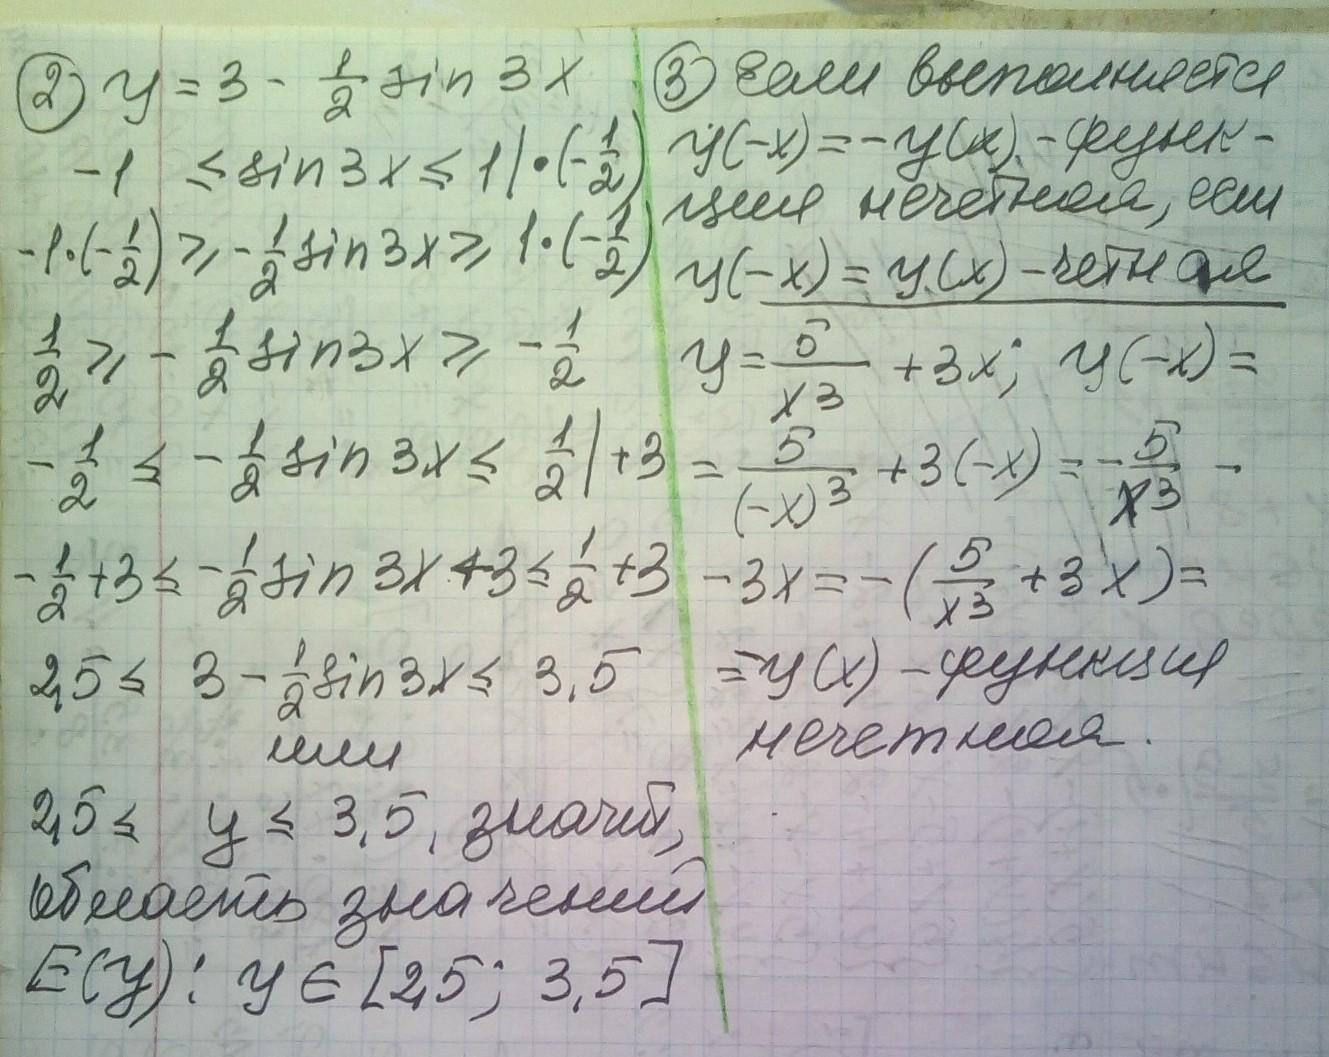 ② y = 3 - 1/2 sin 3x
-1 ≤ sin 3x ≤ 1 | • (-1/2)
-1•(-1/2) ≥ -1/2 sin 3x ≥ 1•(-1/2)
1/2 ≥ - 1/2 sin 3x ≥ - 1/2
- 1/2 ≤ - 1/2 sin 3x ≤ 1/2 | +3
- 1/2 + 3 ≤ - 1/2 sin 3x + 3 ≤ 1/2 + 3
2,5 ≤ 3 - 1/2 sin 3x ≤ 3,5
или
2,5 ≤ y ≤ 3,5, значит,
область значений
E(y): y ∈ [2,5; 3,5]
③ Если выполняется
y(-x) = -y(x) - функ-
ция нечетная, если
y(-x) = y(x) - четная
y = 5/x³ + 3x; y(-x) =
= 5/(-x)³ + 3(-x) = - 5/x³ -
- 3x = -(5/x³ + 3x) =
= -y(x) - функция
нечетная.